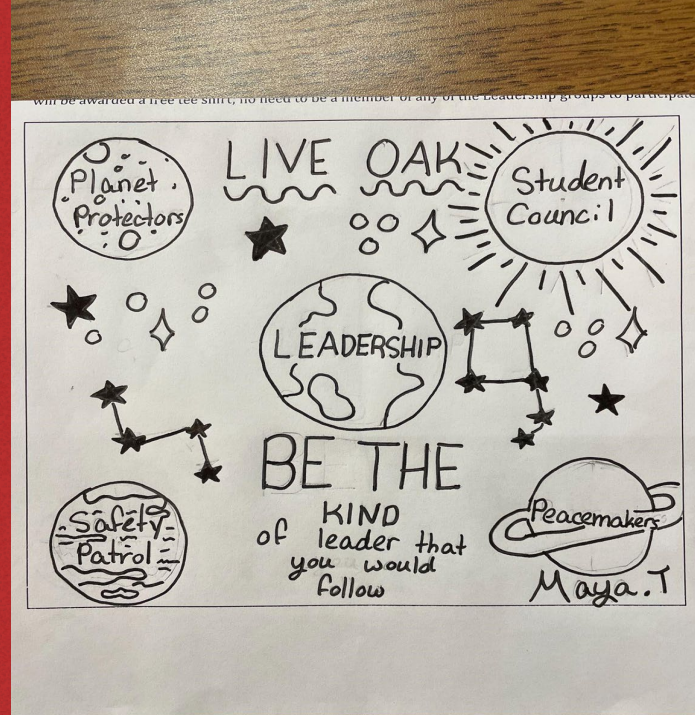 will be awarded a free tee shirt, no need to be a member of any of the Leadership groups to participate
LIVE OAK
Planet
Protectors
Student
Council
LEADERSHIP
BE THE
KIND
of leader that
you would
follow
Safety
Patrol
Peacemakers
Maya.T